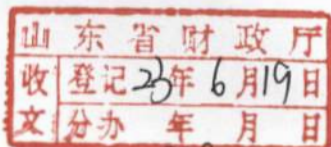 山东省财政厅
收文
登记23年6月19日
分办 年 月 日